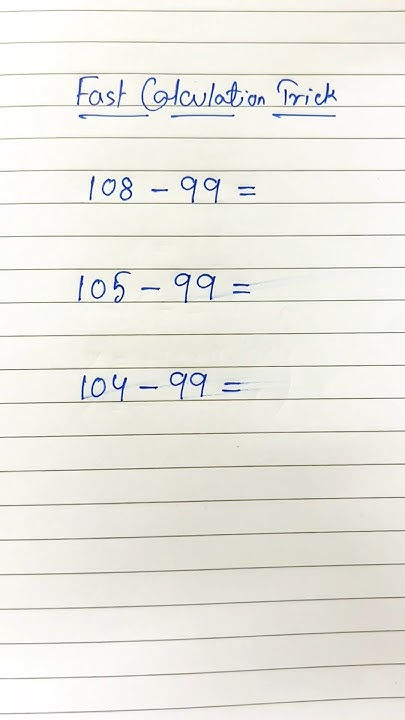 Fast Calculation Trick
108 - 99 =
105 - 99 =
104 - 99 =